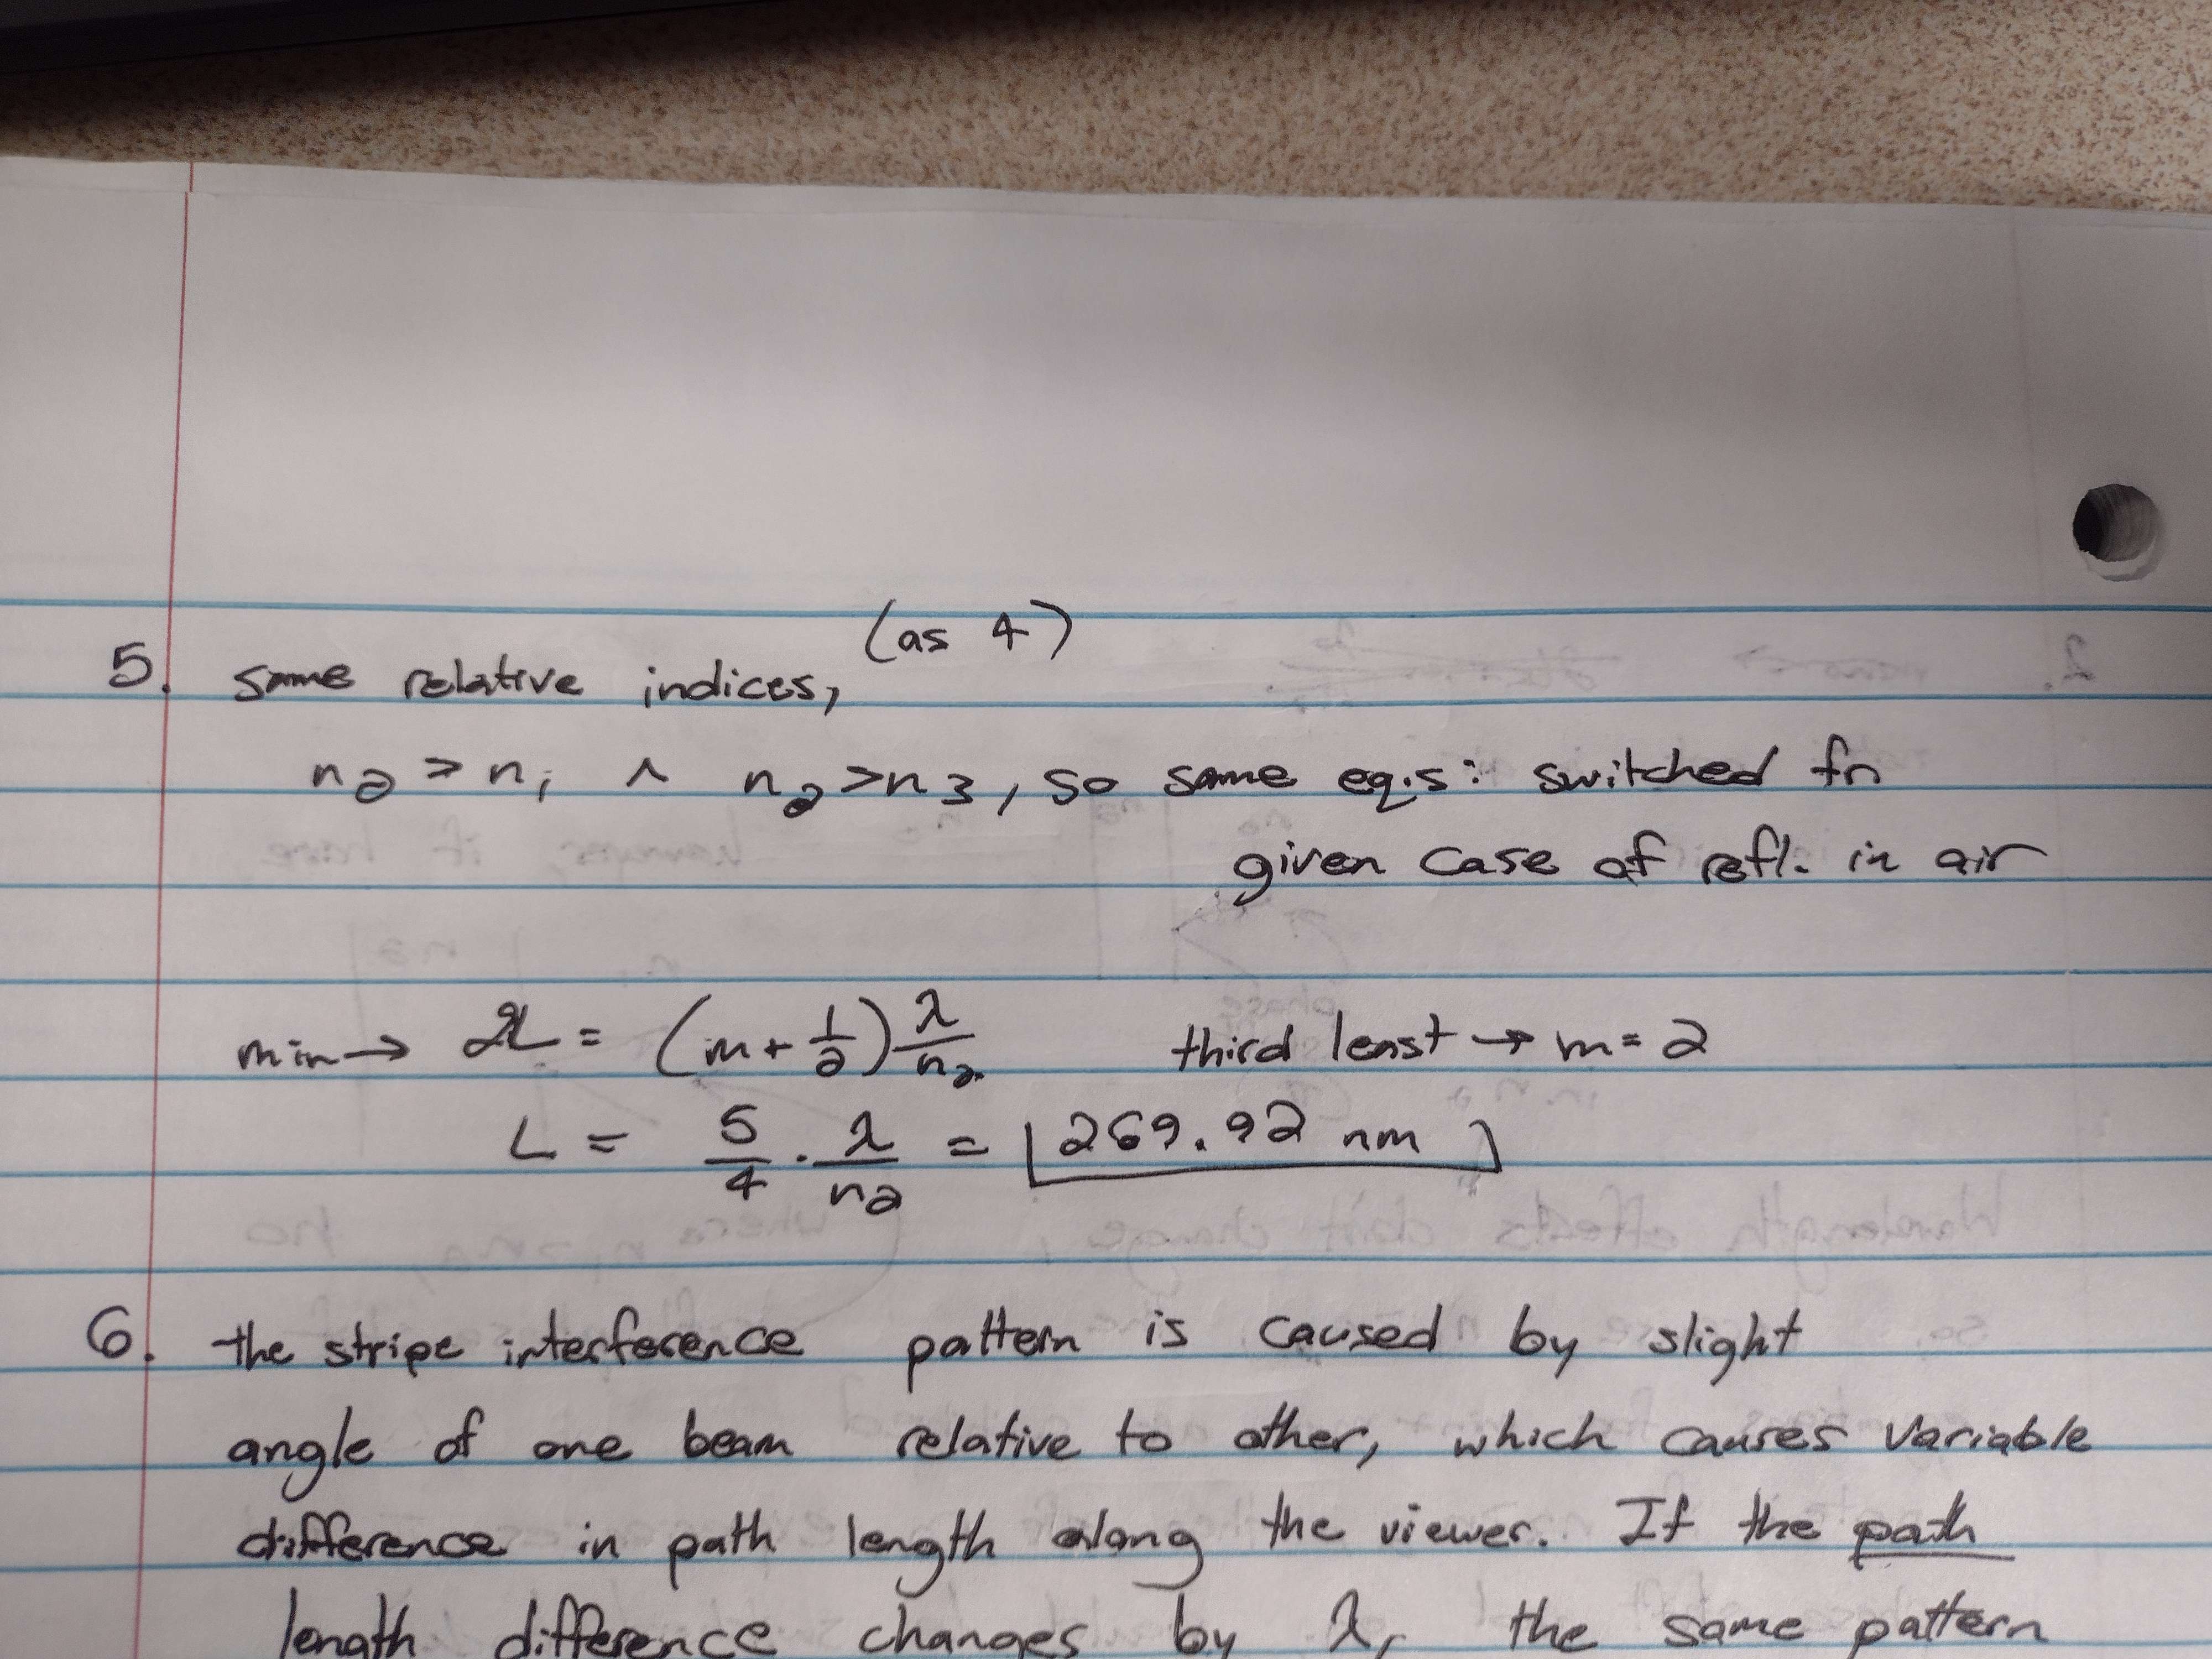 (as 4)
5. same relative indices,
n₂ > n₁ ∧ n₂ > n₃, so same eq.s: switched fn
given case of refl. in air
min → 2L = (m + 1/2) λ/n₂ third least → m = 2
L = 5/4 · λ/n₂ = 269.92 nm
6. the stripe interference pattern is caused by slight
angle of one beam relative to other, which causes variable
difference in path length along the viewer. If the path
length difference changes by λ, the same pattern